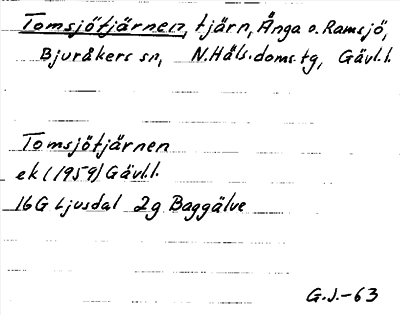 Tomsjötjärnen, tjärn, Änga o. Ramsjö,
Bjuråkers sn, N.Häls.doms.tg, Gävl.l.
Tomsjötjärnen
ek (1959) Gävl.l.
16G Ljusdal 2g Baggälve
G.J.-63